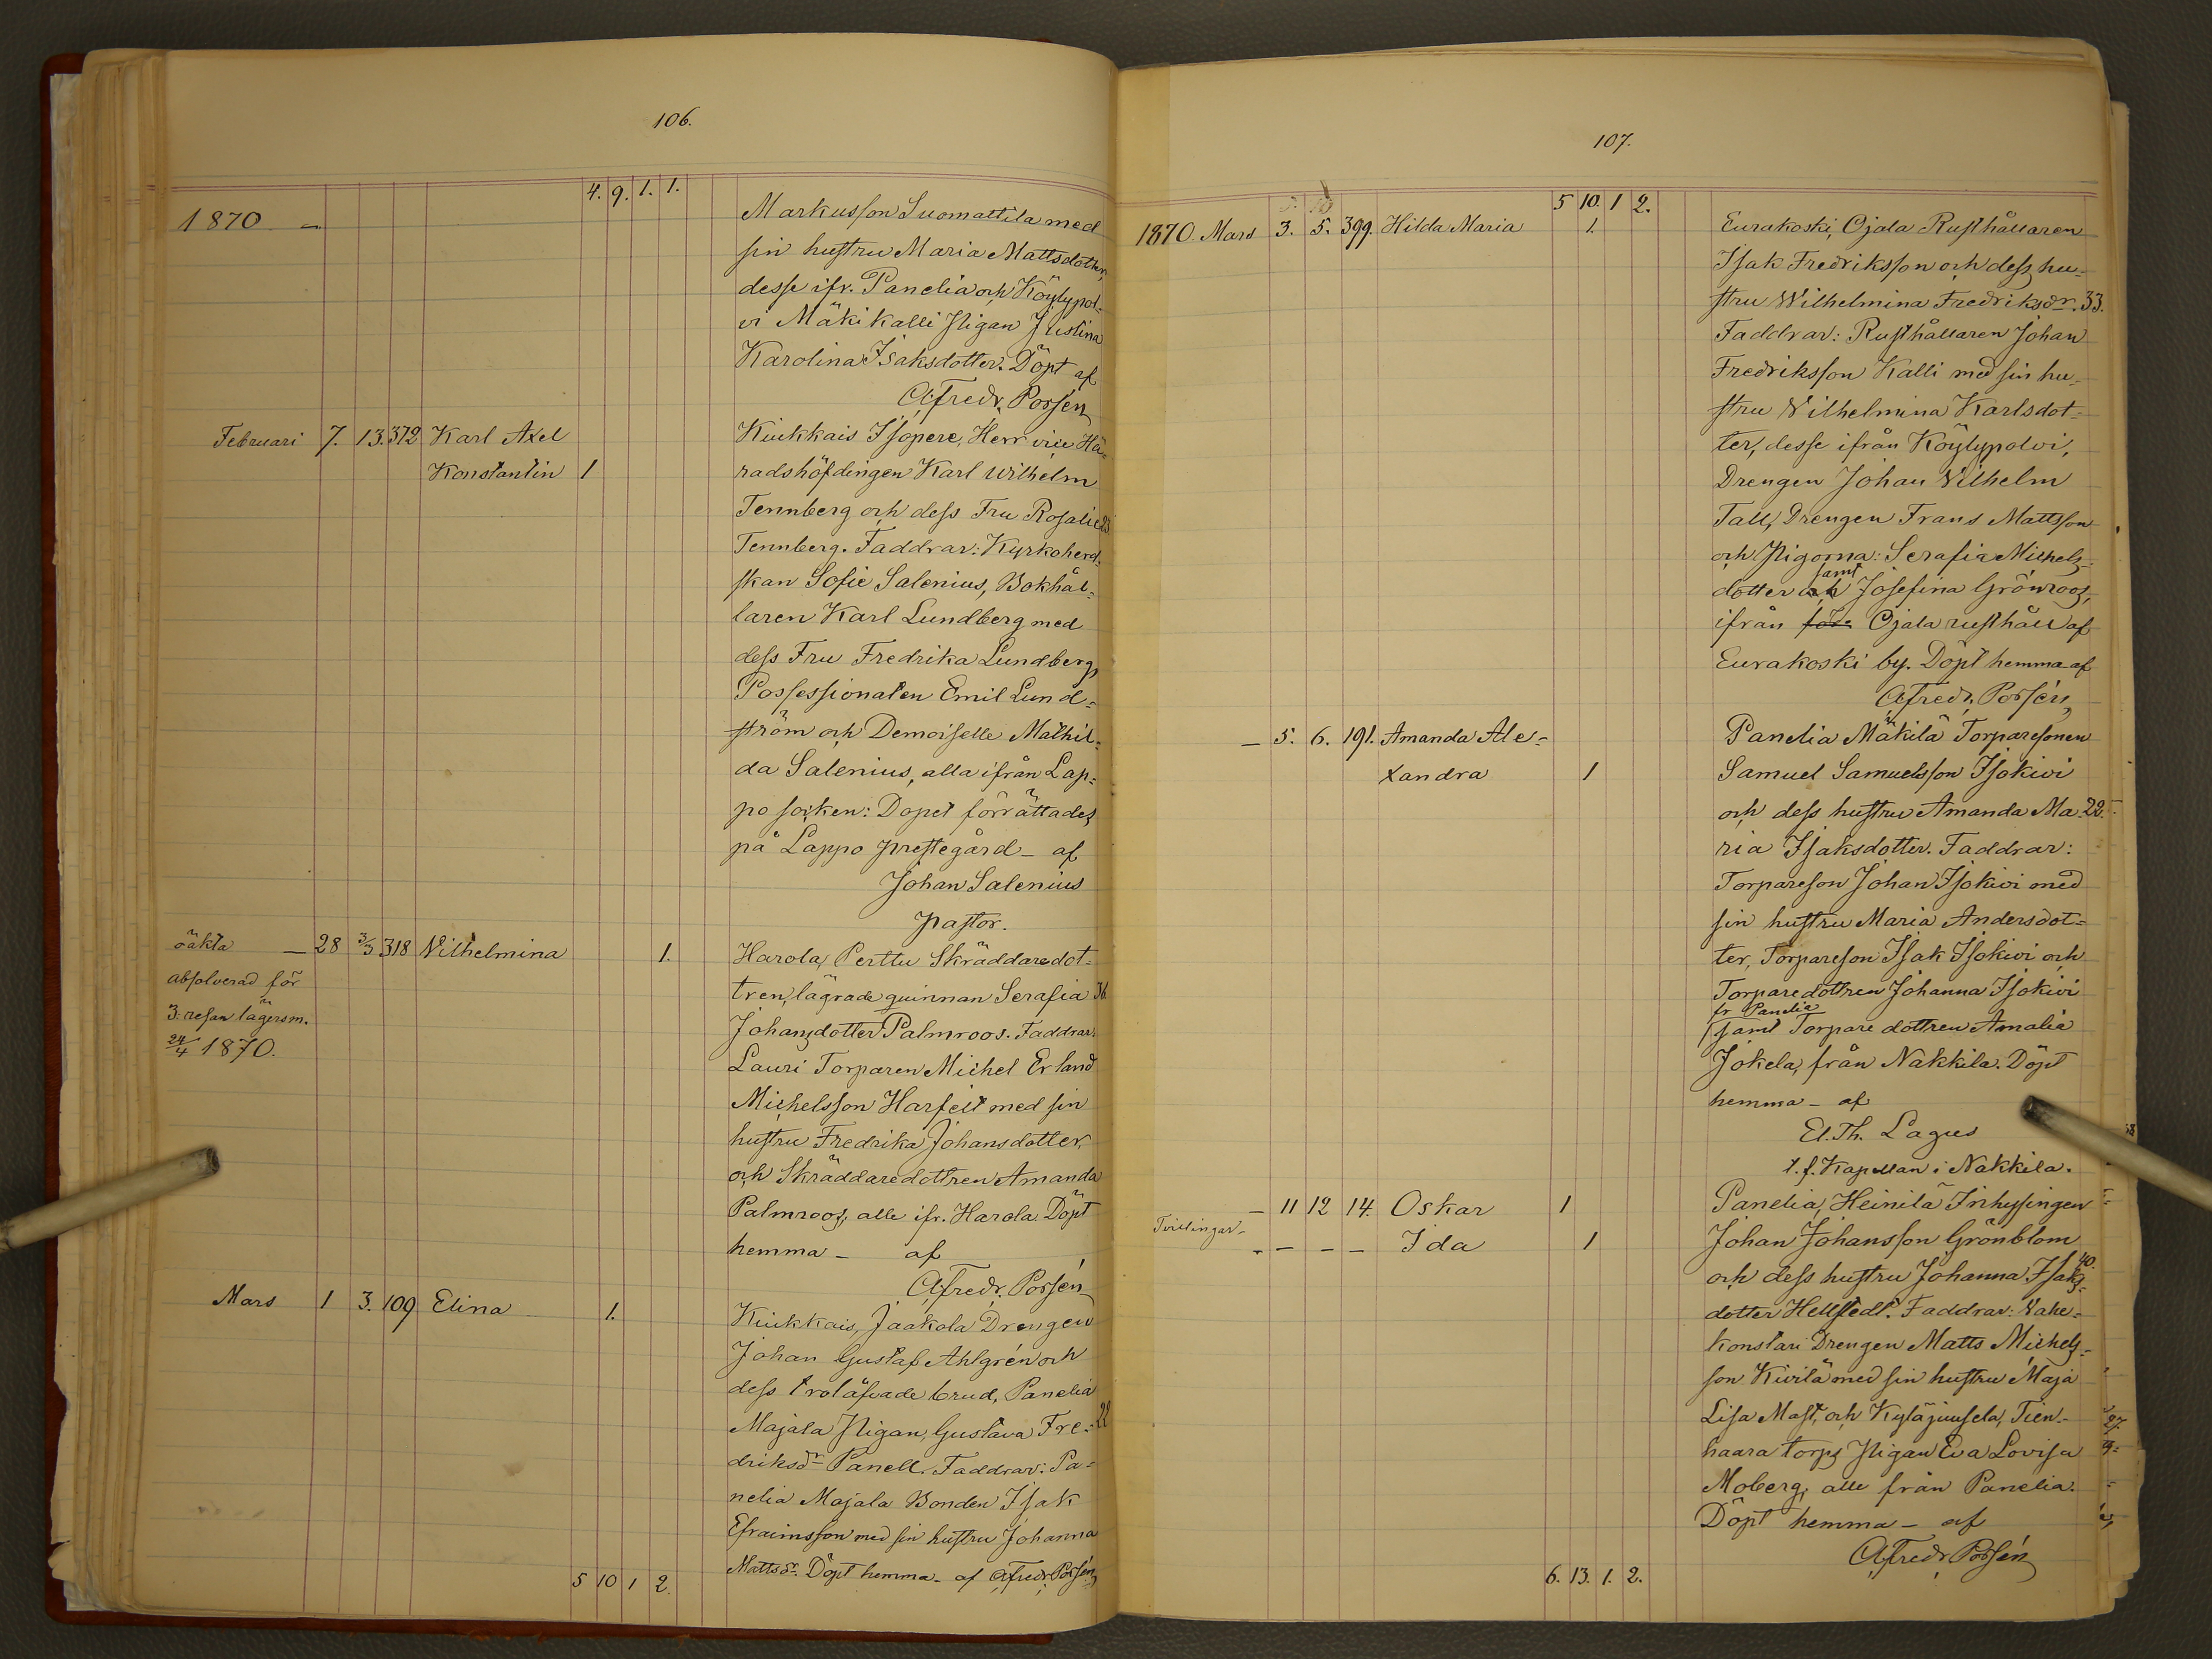 106.
4. 9. 1. 1.
1870 —
Markusson Suomattila med
sin hustru Maria Mattsdotter,
desse ifr. Panelia och Köylypol-
vi Mäkikalli Pigan Justina
Karolina Isaksdotter. Döpt af
A. Fredr. Porsén
Februari 7. 13. 372 Karl Axel
Konstantin 1
Kiukkais Isopere, Herr vice Hä-
radshöfdingen Karl Wilhelm
Tennberg och dess Fru Rosalie
Tennberg. Faddrar: Kyrkoherd-
skan Sofie Salenius, Bokhål-
laren Karl Lundberg med
dess Fru Fredrika Lundberg,
Possessionaten Emil Lund-
ström och Demoiselle Mathil-
da Salenius, alla ifrån Lap-
po socken: Dopet förrättades
på Lappo prestegård — af
Johan Salenius
pastor.
oäkta — 28 3/3 318 Vilhelmina 1.
absolverad för
3: resan lägersm.
24/4 1870.
Harola, Perttu Skräddaredot-
tren, lägrade quinnan Serafia 36
Johansdotter Palmroos. Faddrar:
Lauri Torparen Michel Erland
Michelsson Harfelt med sin
hustru Fredrika Johansdotter,
och Skräddaredottren Amanda
Palmroos, alle ifr. Harola Döpt
hemma — af
A. Fredr. Porsén
Mars 1 3. 109 Elina 1.
Kiukkais, Jaakola Drengen
Johan Gustaf Ahlgrén och
dess trolåfvade brud, Panelia
Majala Pigan, Gustava Fre- 22
driksdr Panell. Faddrar: Pa-
nelia Majala Bonden Isak
Efraimsson med sin hustru Johanna
Mattsdr. Döpt hemma — af A. Fredr. Porsén
5 10 1 2.
107.
5 10. 1 2.
1870. Mars 3. 5. 399. Hilda Maria 1.
Eurakoski, Ojala Rusthållaren
Isak Fredriksson och dess hu-
stru Wilhelmina Fredriksdr. 33.
Faddrar: Rusthållaren Johan
Fredriksson Kalli med sin hu-
stru Vilhelmina Karlsdot-
ter, desse ifrån Köylypolvi,
Drengen Johan Vilhelm
Tall, Drengen Frans Mattsson
och Pigorna: Serafia Michels-
samt
dotter och Josefina Grönroos,
ifrån Ojala rusthåll af
Eurakoski by. Döpt hemma af
A. Fredr. Porsén
— 5. 6. 191. Amanda Ale-
xandra 1
Panelia Mäkilä Torparesonen
Samuel Samuelsson Isokivi
och dess hustru Amanda Ma- 22.
ria Isaksdotter. Faddrar:
Torpareson Johan Isokivi med
sin hustru Maria Andersdot-
ter, Torpareson Isak Isokivi och
Torparedottren Johanna Isokivi
fr Panelia
samt Torpare dottren Amalia
Jokela, från Nakkila. Döpt
hemma — af
El. Th. Lagus
t. f. Kapellan i Nakkila.
— 11 12 14. Oskar 1
Tvillingar —
— — — — Ida 1
Panelia, Heinilä Inhysingen
Johan Johansson Grönblom
och dess hustru Johanna Isaks- 40.
dotter Hellstedt. Faddrar: Vahe-
konstari Drengen Matts Michels-
son Kivilä med sin hustru Maja
Lisa Mast, och Kyläjuusela, Tien-
haara torps Pigan Eva Lovisa
Moberg, alle från Panelia.
Döpt hemma — af
A. Fredr. Porsén
6. 13. 1. 2.